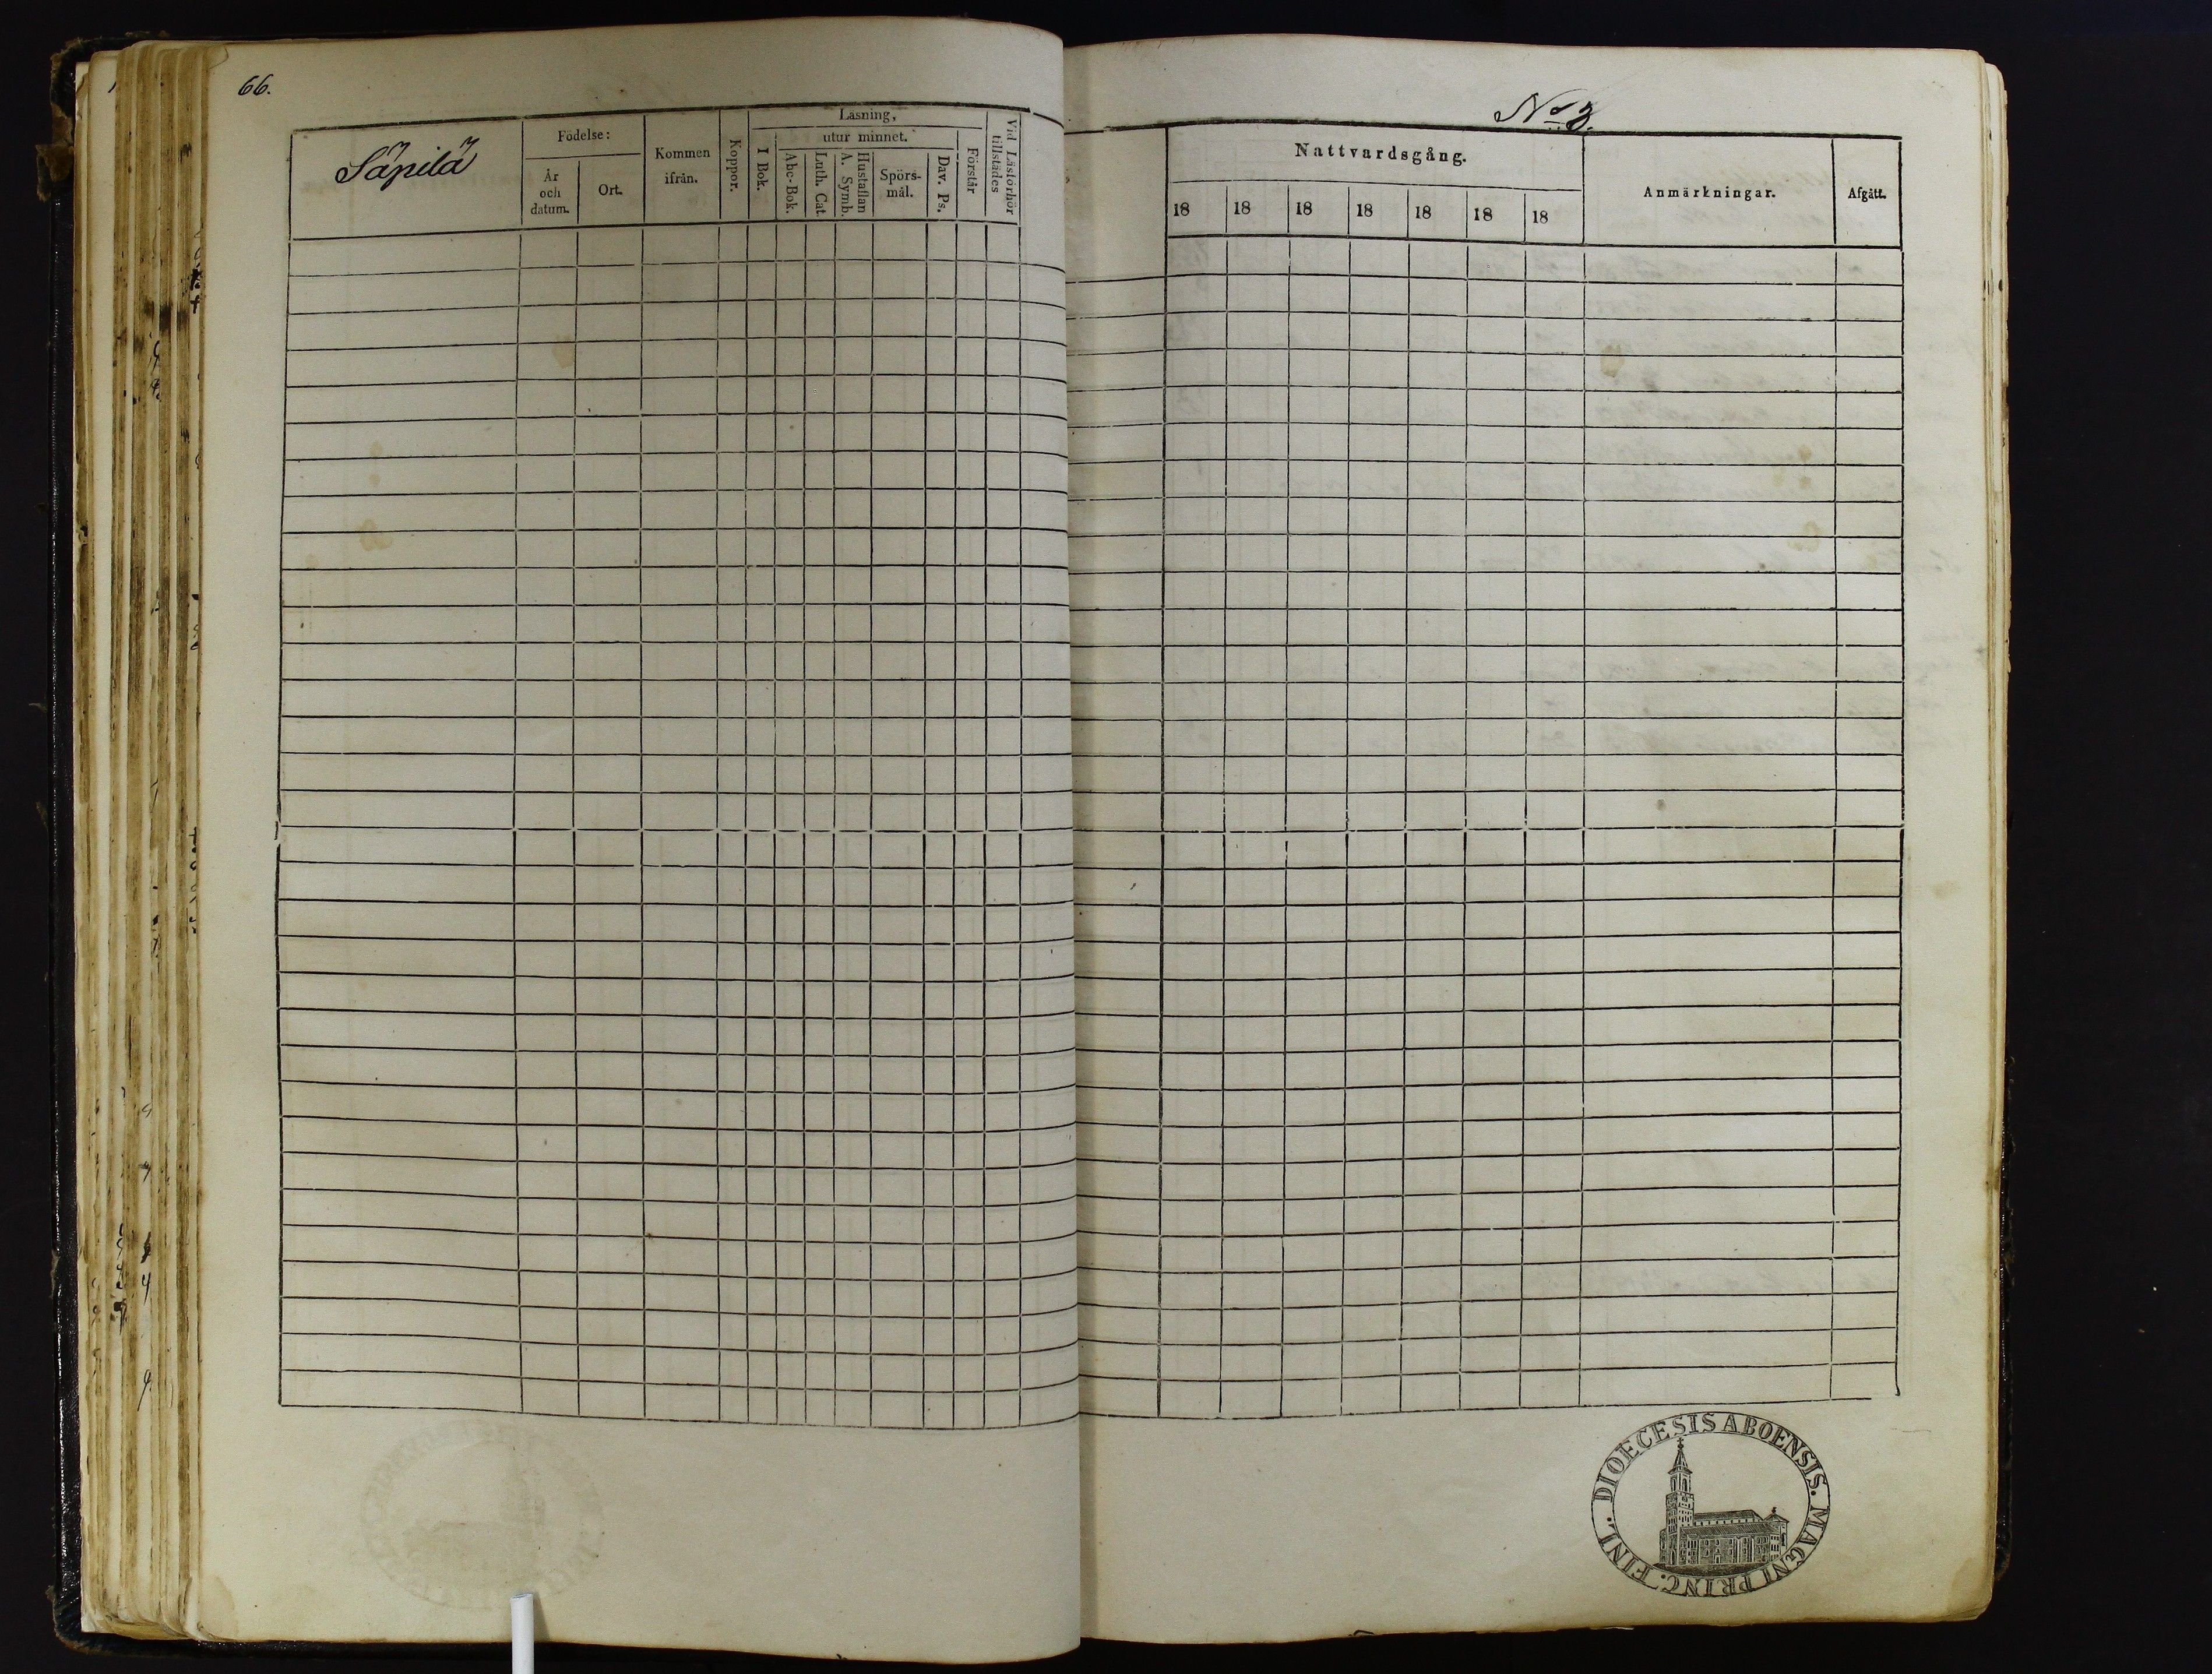 66.
No 3.
Säpilä
Födelse:
År
och
datum.
Ort.
Kommen
ifrån.
Koppor.
Läsning,
I Bok.
utur minnet.
Abc-Bok.
Luth. Cat.
A. Symb.
Hustaflan
Spörs-
mål.
Dav. Ps.
Förstår
Vid Läsförhör
tillstädes
Nattvardsgång.
18 18 18 18 18 18 18
Anmärkningar.
Afgått.
DIOECESIS ABOENSIS. MAGNI PRINC. FINL.